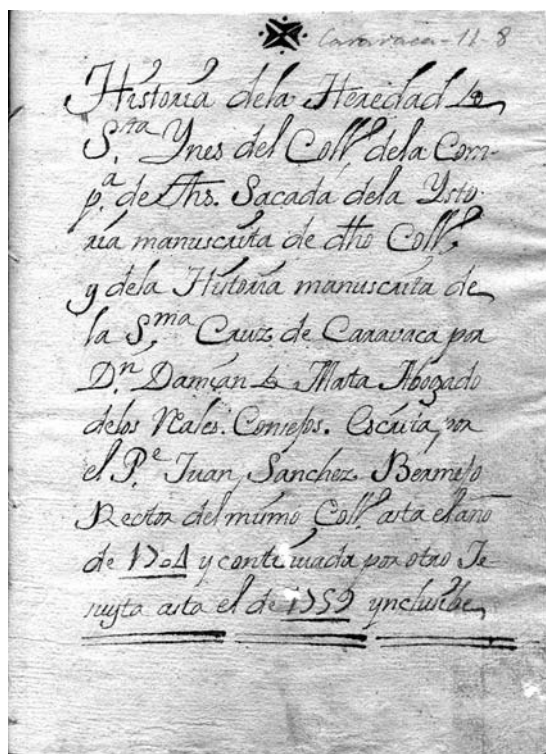 Caravaca-11-8
Historia dela Heredad de
S.ta Ynes del Coll.o dela Com-
p.a de Jhs. Sacada dela Ysto-
ria manuscrita de dho Coll.o
y dela Historia manuscrita de
la S.ma Cruz de Caravaca por
D.n Damian de Mata Abogado
delos Rales. Consejos. Escrita, por
el P.e Juan Sanchez Bermejo
Rector del mismo Coll.o asta el año
de 1704 y continuada por otro Je-
suyta asta el de 1759 ynclusibe